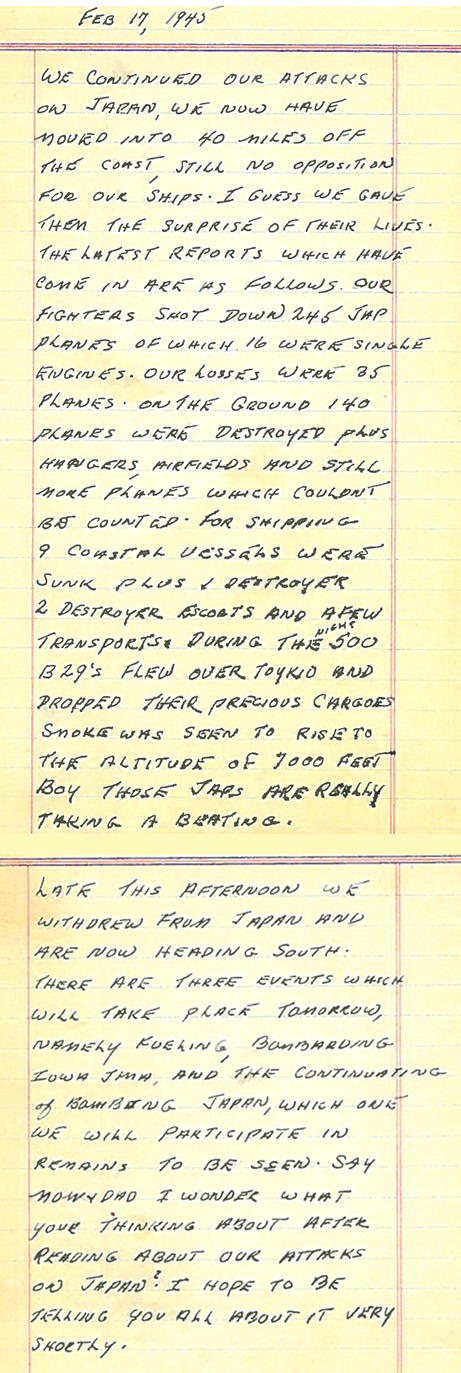 FEB 17, 1945
WE CONTINUED OUR ATTACKS
ON JAPAN, WE NOW HAVE
MOVED INTO 40 MILES OFF
THE COAST, STILL NO OPPOSITION
FOR OUR SHIPS. I GUESS WE GAVE
THEM THE SURPRISE OF THEIR LIVES.
THE LATEST REPORTS WHICH HAVE
COME IN ARE AS FOLLOWS. OUR
FIGHTERS SHOT DOWN 245 JAP
PLANES OF WHICH 16 WERE SINGLE
ENGINES. OUR LOSSES WERE 35
PLANES. ON THE GROUND 140
PLANES WERE DESTROYED PLUS
HANGERS, AIRFIELDS AND STILL
MORE PLANES WHICH COULDNT
BE COUNTED. FOR SHIPPING
9 COASTAL VESSELS WERE
SUNK PLUS 1 DESTROYER
2 DESTROYER ESCORTS AND A FEW
TRANSPORTS. DURING THE NIGHT 500
B29'S FLEW OVER TOYKIO AND
DROPPED THEIR PRECIOUS CARGOES
SMOKE WAS SEEN TO RISE TO
THE ALTITUDE OF 7000 FEET
BOY THOSE JAPS ARE REALLY
TAKING A BEATING.
LATE THIS AFTERNOON WE
WITHDREW FROM JAPAN AND
ARE NOW HEADING SOUTH.
THERE ARE THREE EVENTS WHICH
WILL TAKE PLACE TOMORROW,
NAMELY FUELING, BOMBARDING
IOWA JIMA, AND THE CONTINUATING
of BOMBING JAPAN, WHICH ONE
WE WILL PARTICIPATE IN
REMAINS TO BE SEEN. SAY
MOM & DAD I WONDER WHAT
YOUR THINKING ABOUT AFTER
READING ABOUT OUR ATTACKS
ON JAPAN? I HOPE TO BE
TELLING YOU ALL ABOUT IT VERY
SHORTLY.